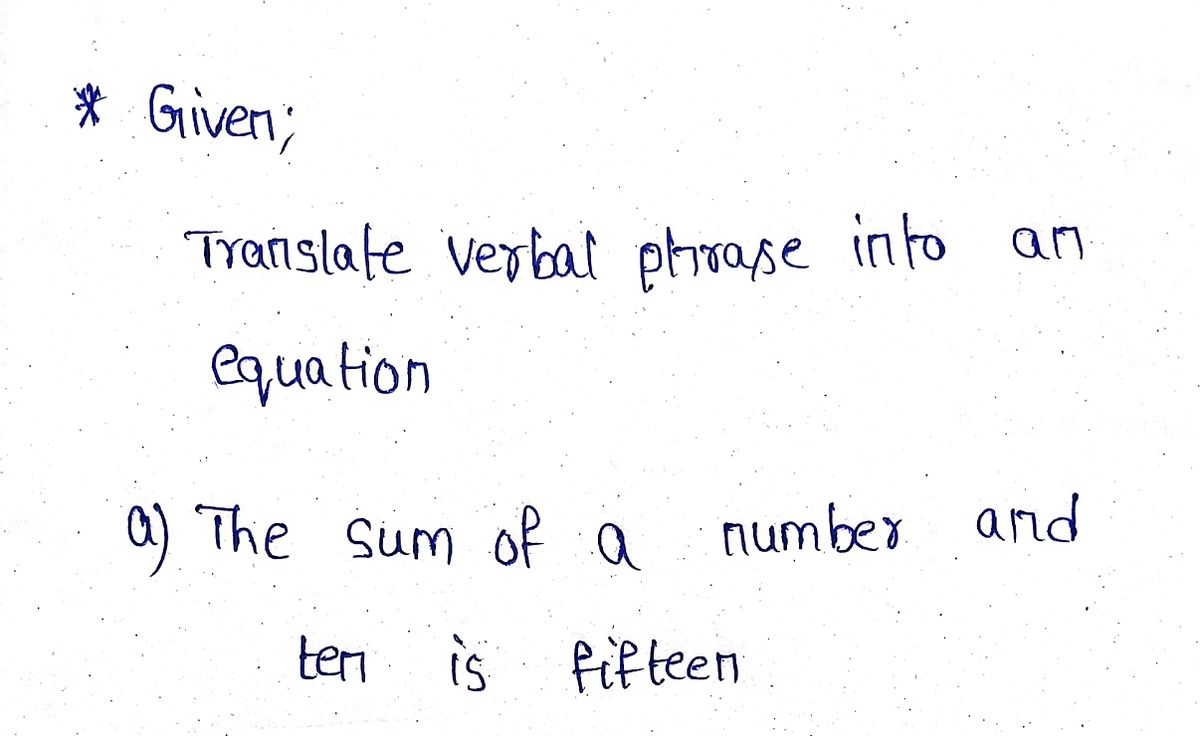 * Given;
Translate verbal phrase into an
equation
a) The sum of a number and
ten is fifteen